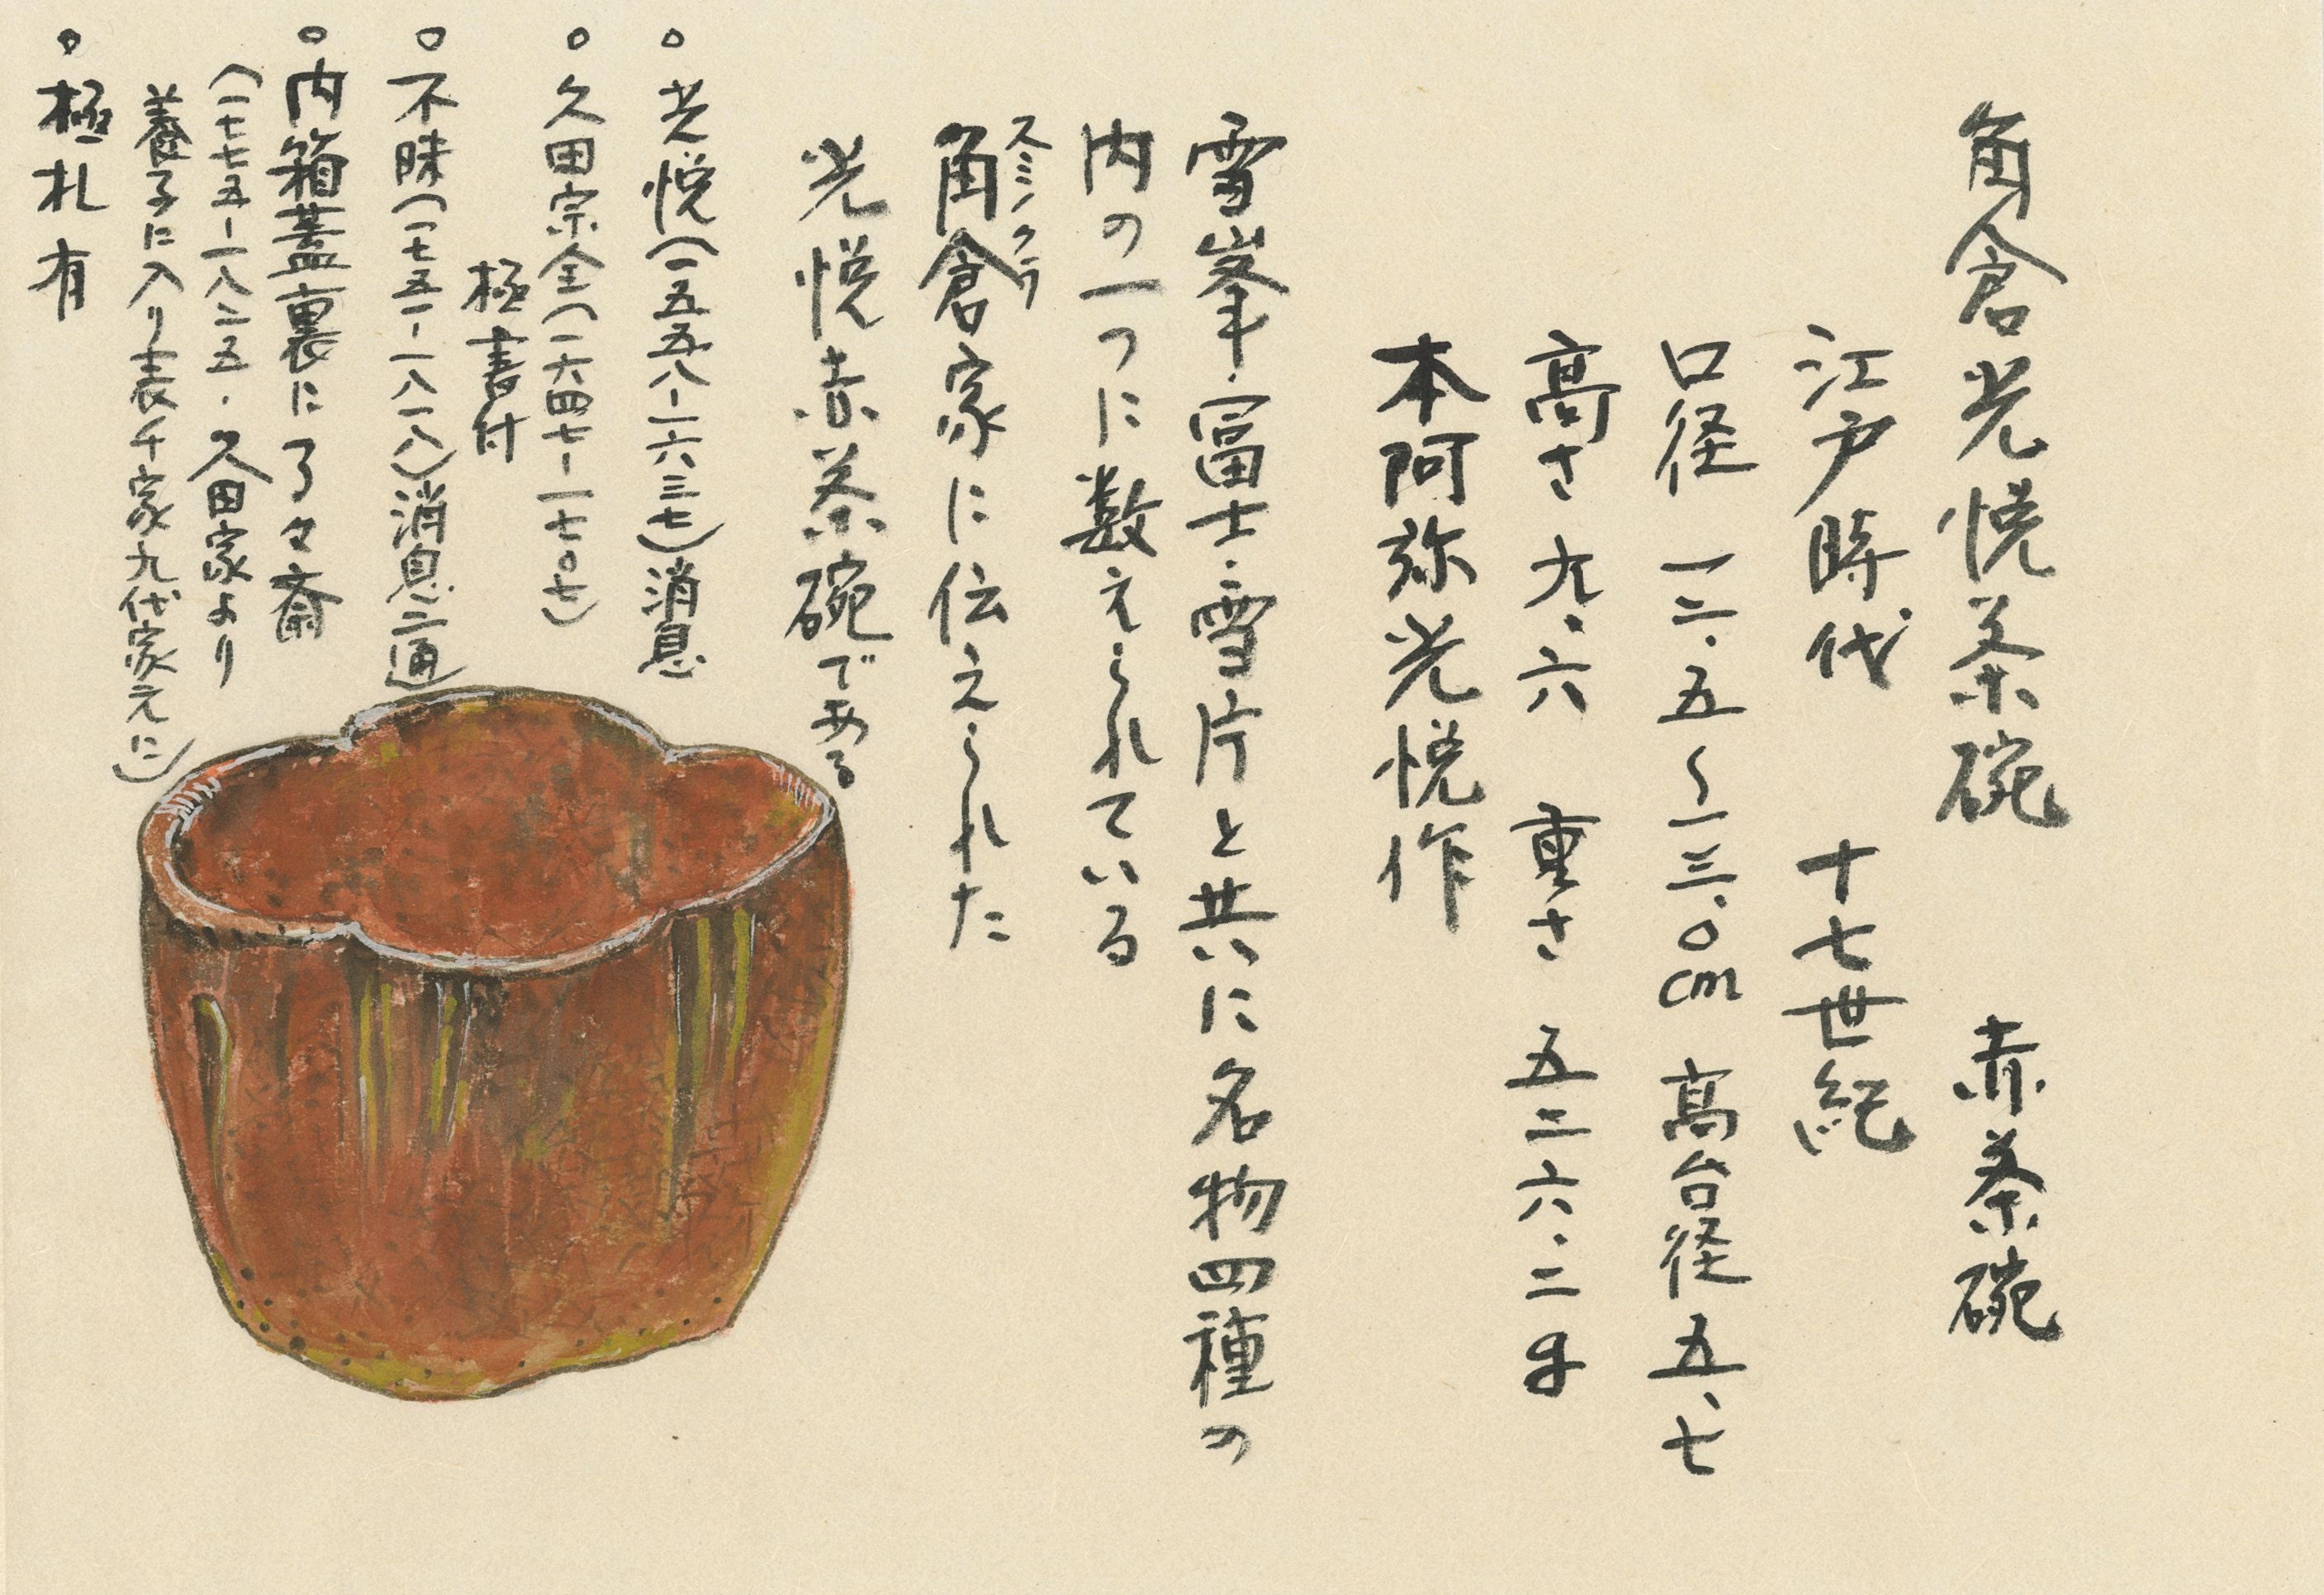 角倉光悦茶碗　赤茶碗
江戸時代　十七世紀
口径 一二.五～一三.〇cm 高台径 五.七
高さ 九.六　重さ 五三六.二g
本阿弥光悦作
雪峯・富士・雪片と共に名物四種の
内の一つに数えられている
スミノクラ
角倉家に伝えられた
光悦赤茶碗である
○光悦(一五五八-一六三七)消息
○久田宗全(一六四七-一七〇七)
極書付
○不昧(一七五一-一八一八)消息二通
○内箱蓋裏に了々斎
(一七七五-一八二五・久田家より
養子に入り表千家九代家元に)
○極札有